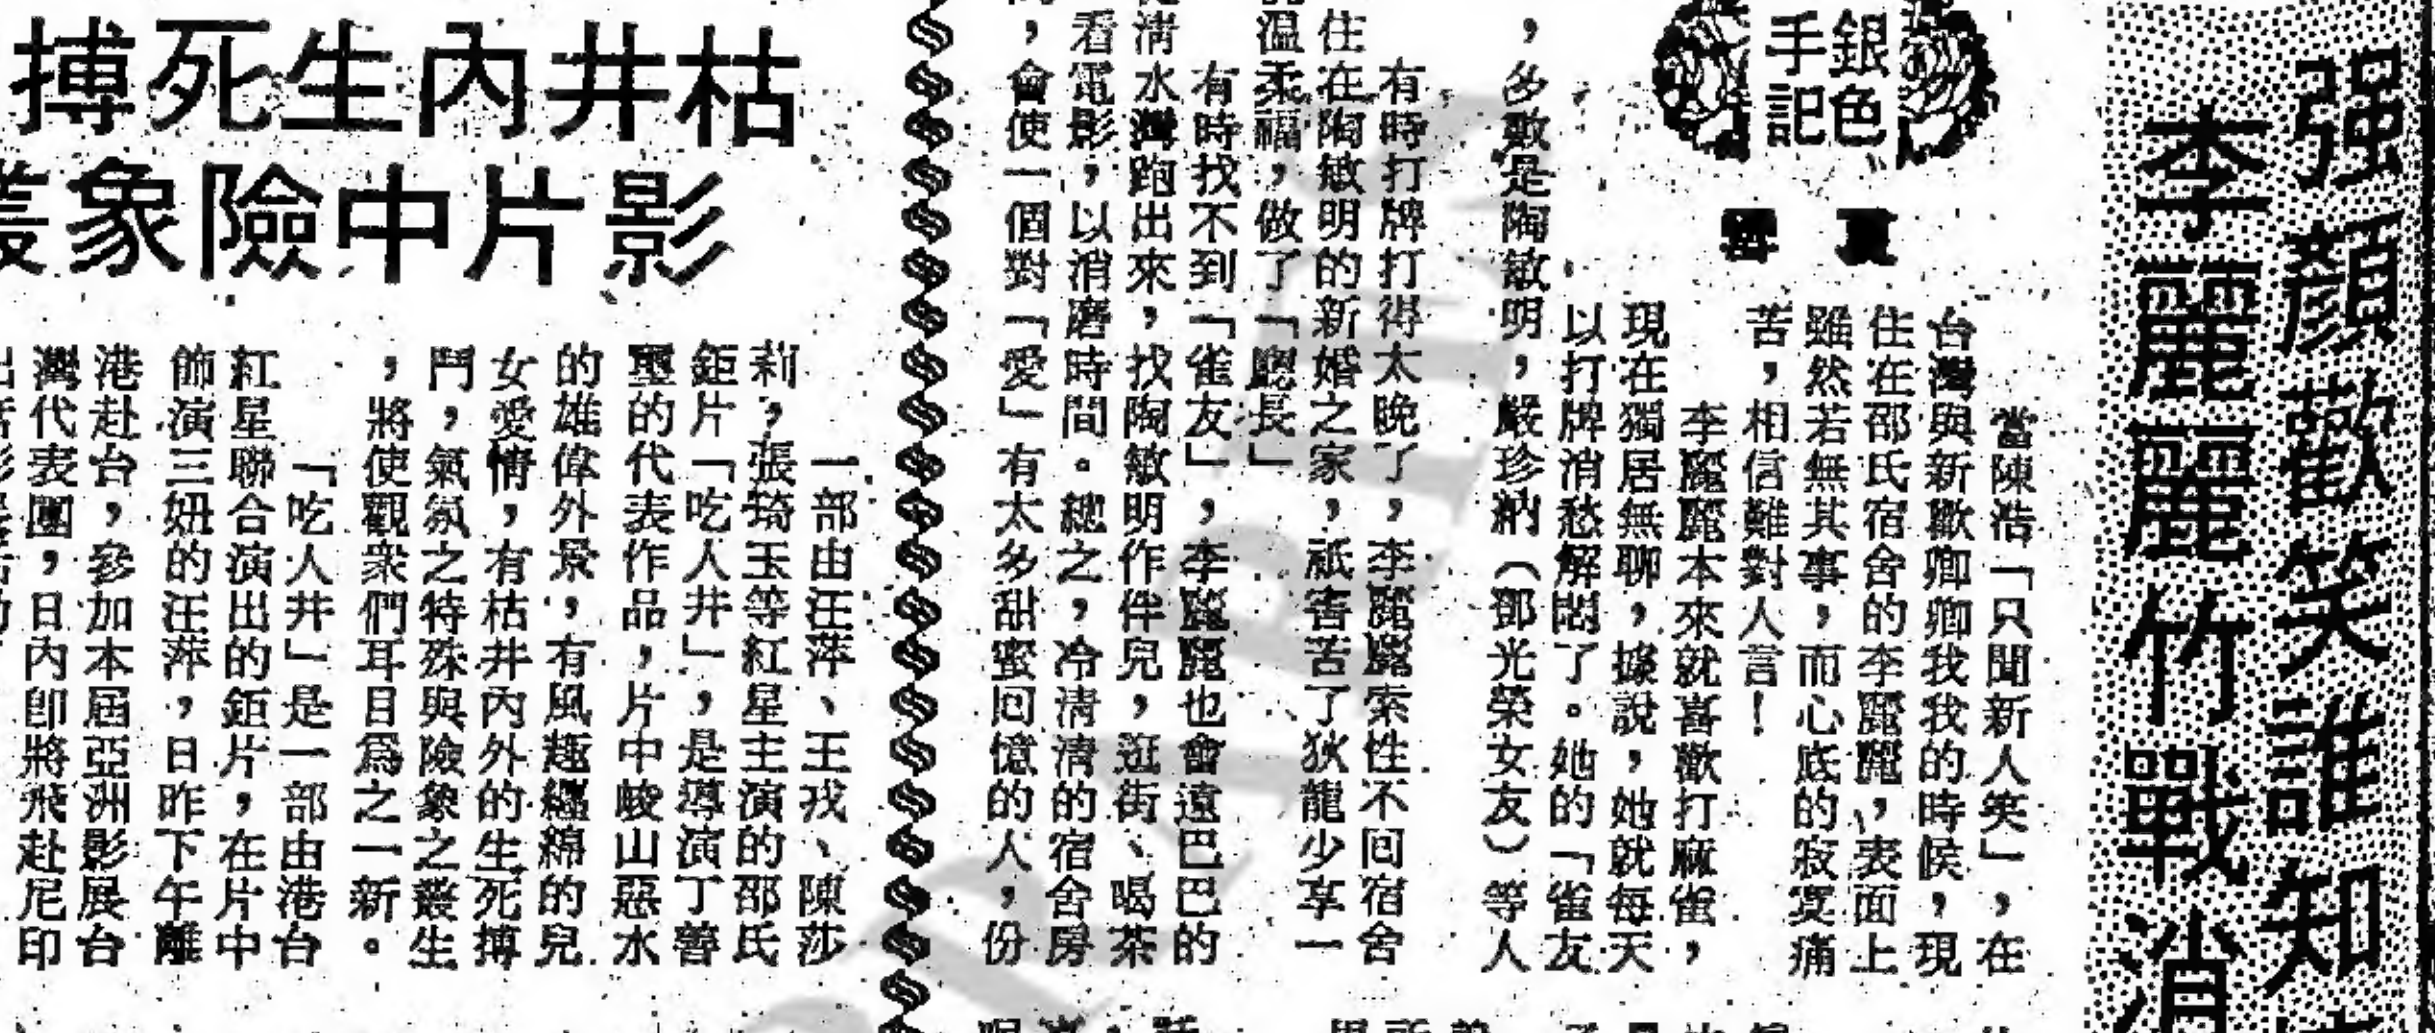 强顏歡笑誰知
李麗麗竹戰消
銀色
手記
當陳浩「只聞新人笑」，在
台灣與新歡卿卿我我的時候，現
住在邵氏宿舍的李麗麗，表面上
雖然若無其事，而心底的寂寞痛
苦，相信難對人言！
李麗麗本來就喜歡打麻雀，
現在獨居無聊，據說，她就每天
以打牌消愁解悶了。她的「雀友
，多數是陶敏明，嚴珍納（鄧光榮女友）等人
有時打牌打得太晚了，李麗麗索性不回宿舍
住在陶敏明的新婚之家，祇害苦了狄龍少享一
溫柔福，做了「廳長」
有時找不到「雀友」，李麗麗也會遠巴巴的
清水灣跑出來，找陶敏明作伴兒，逛街、喝茶
看電影，以消磨時間。總之，冷清清的宿舍房
，會使一個對「愛」有太多甜蜜回憶的人，份
枯井內生死搏
影片中險象叢
一部由汪萍、王戎、陳莎
莉，張琦玉等紅星主演的邵氏
鉅片「吃人井」，是導演丁善
璽的代表作品，片中峻山惡水
的雄偉外景，有風趣纏綿的兒
女愛情，有枯井內外的生死搏
鬥，氣氛之特殊與險象之叢生
，將使觀衆們耳目爲之一新。
「吃人井」是一部由港台
紅星聯合演出的鉅片，在片中
飾演三妞的汪萍，日昨下午離
港赴台，參加本屆亞洲影展台
灣代表團，日內即將飛赴尼印